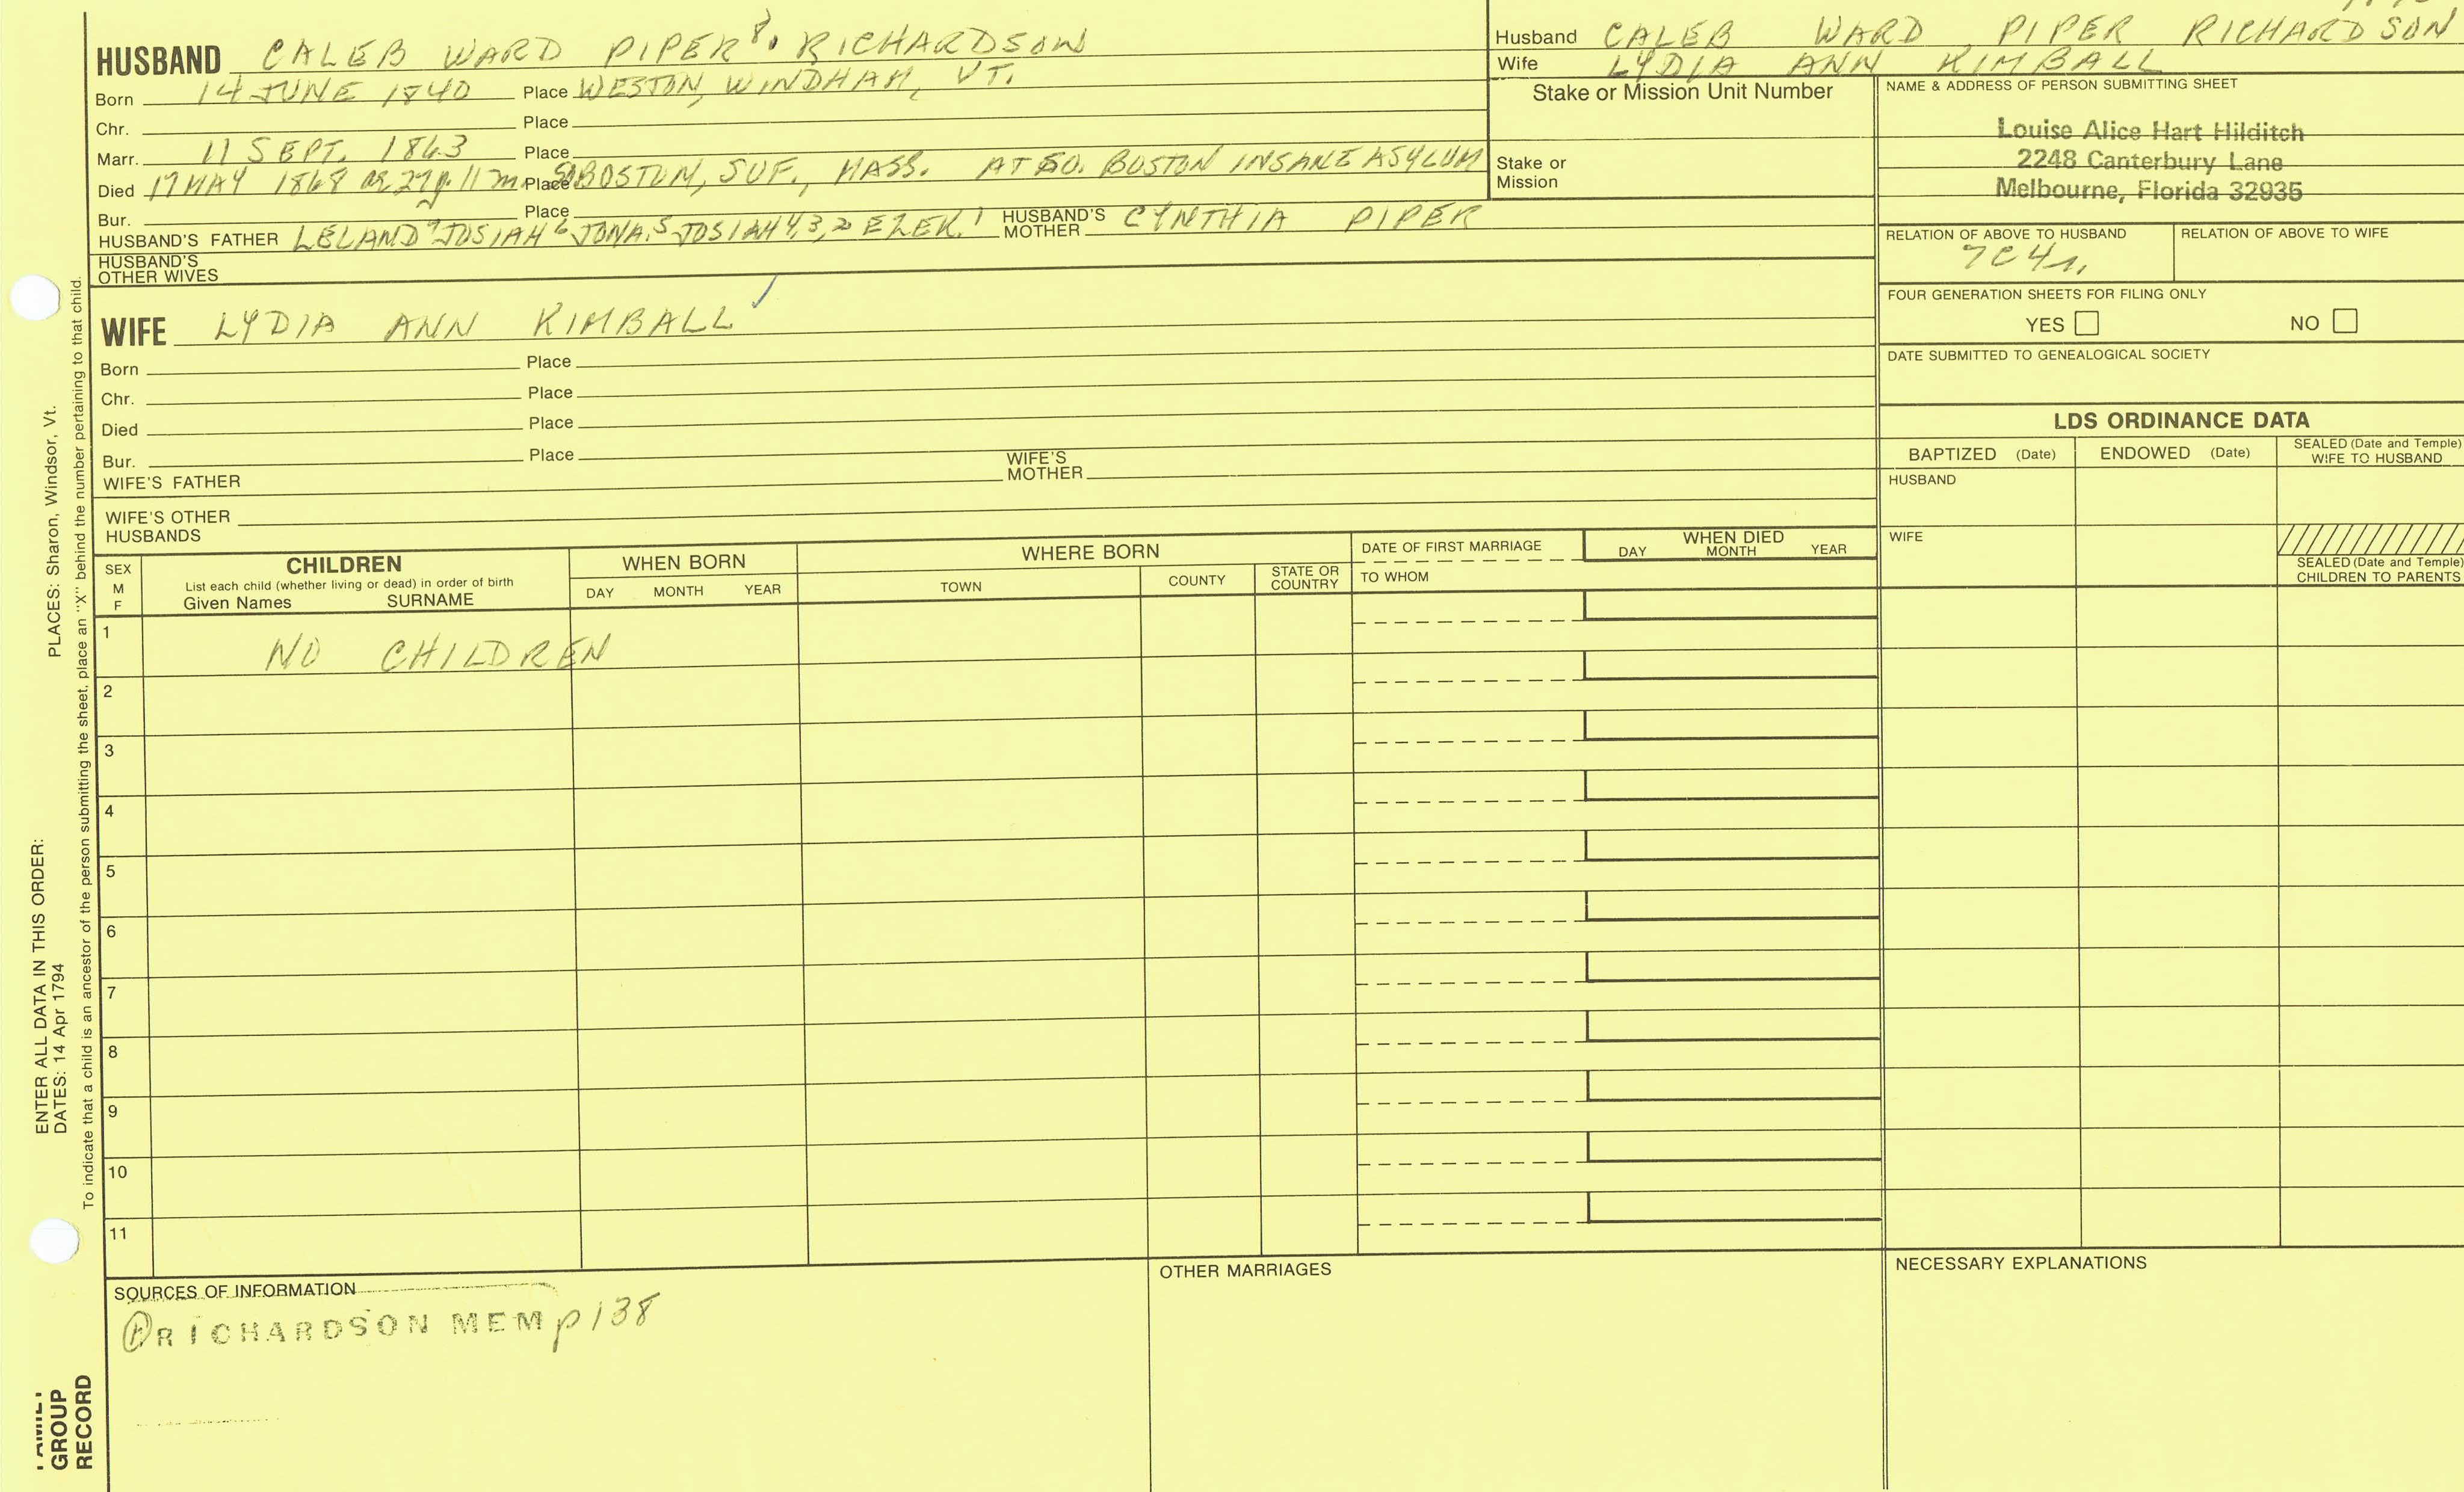 HUSBAND CALEB WARD PIPER 8. RICHARDSON
Born 14 JUNE 1840 Place WESTON, WINDHAM, VT.
Chr. Place
Marr. 11 SEPT. 1863 Place
Died 17 MAY 1868 ae 27y. 11 m. Place SO BOSTON, SUF., MASS. AT SO. BOSTON INSANE ASYLUM
Bur. Place
HUSBAND'S FATHER LELAND 7 JOSIAH 6 JONA. 5 JOSIAH 4,3,2 EZEK. 1 HUSBAND'S MOTHER CYNTHIA PIPER
HUSBAND'S OTHER WIVES
WIFE LYDIA ANN KIMBALL
Born Place
Chr. Place
Died Place
Bur. Place
WIFE'S FATHER WIFE'S MOTHER
WIFE'S OTHER HUSBANDS
Husband CALEB WARD PIPER RICHARDSON
Wife LYDIA ANN KIMBALL
Stake or Mission Unit Number
Stake or Mission
NAME & ADDRESS OF PERSON SUBMITTING SHEET
Louise Alice Hart Hilditch
2248 Canterbury Lane
Melbourne, Florida 32935
RELATION OF ABOVE TO HUSBAND RELATION OF ABOVE TO WIFE
7C4r.
FOUR GENERATION SHEETS FOR FILING ONLY
YES NO
DATE SUBMITTED TO GENEALOGICAL SOCIETY
LDS ORDINANCE DATA
BAPTIZED (Date) ENDOWED (Date) SEALED (Date and Temple) WIFE TO HUSBAND
HUSBAND
WIFE
SEALED (Date and Temple) CHILDREN TO PARENTS
SEX M F
CHILDREN
List each child (whether living or dead) in order of birth
Given Names SURNAME
WHEN BORN
DAY MONTH YEAR
WHERE BORN
TOWN COUNTY STATE OR COUNTRY
DATE OF FIRST MARRIAGE
TO WHOM
WHEN DIED
DAY MONTH YEAR
1 NO CHILDREN
2
3
4
5
6
7
8
9
10
11
SOURCES OF INFORMATION
RICHARDSON MEM p138
OTHER MARRIAGES
NECESSARY EXPLANATIONS
ENTER ALL DATA IN THIS ORDER:
DATES: 14 Apr 1794
PLACES: Sharon, Windsor, Vt.
To indicate that a child is an ancestor of the person submitting the sheet, place an "X" behind the number pertaining to that child.
FAMILY
GROUP
RECORD